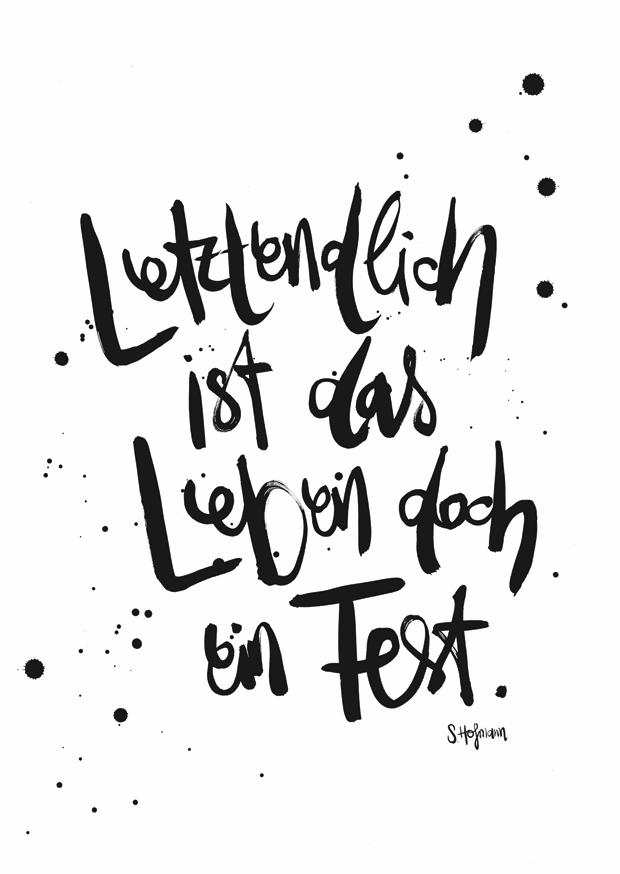 Letztendlich
ist das
Leben doch
ein Fest.
S.Hofmann